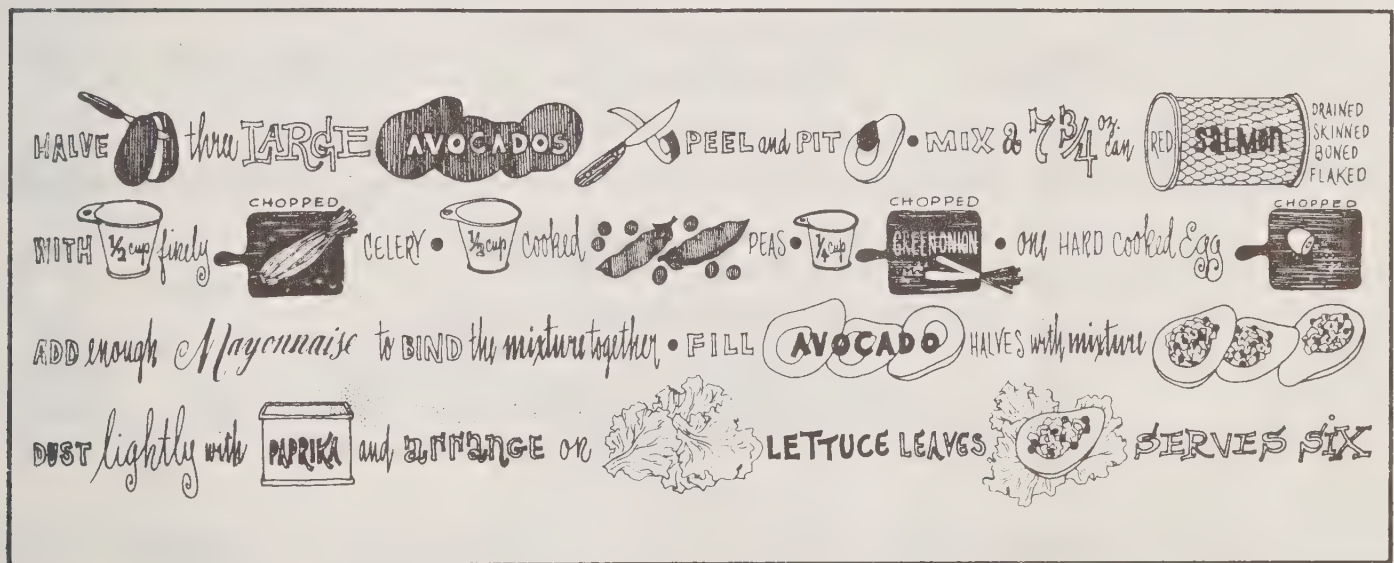 HALVE three LARGE AVOCADOS PEEL and PIT • MIX a 7 3/4 oz. can RED SALMON DRAINED SKINNED BONED FLAKED
WITH 1/2 cup finely CHOPPED CELERY • 1/2 cup cooked PEAS • 1/4 cup CHOPPED GREEN ONION • one HARD cooked Egg CHOPPED
ADD enough Mayonnaise to BIND the mixture together • FILL AVOCADO HALVES with mixture
DUST lightly with PAPRIKA and arrange on LETTUCE LEAVES SERVES SIX